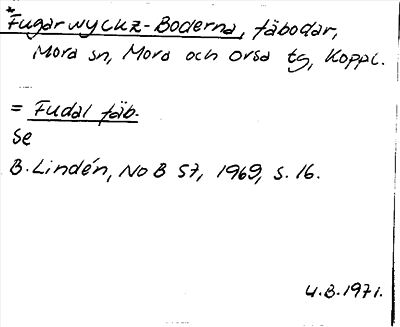 *Fugarwyckz-Boderna, fäbodar,
Mora sn, Mora och Orsa tg, Koppl.
= Fudal fäb.
Se
B. Lindén, NoB 57, 1969, s. 16.
U.B. 1971.